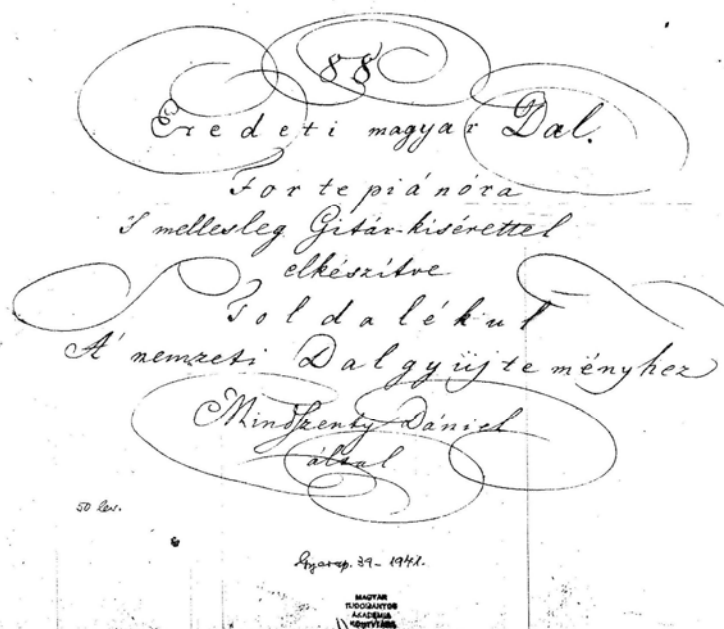 88
Eredeti magyar Dal.
Fortepiánóra
's mellesleg Gitár-kisérettel
elkészítve
Toldalékul
A' nemzeti Dalgyüjteményhez
Mindszenty Dániel
által
50 lev.
39 - 1941.
MAGYAR
TUDOMÁNYOS
AKADÉMIA
KÖNYVTÁRA